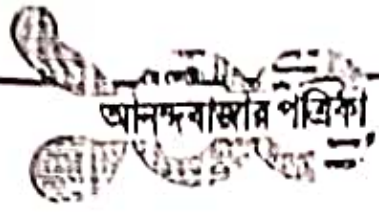 আনন্দবাজার পত্রিকা